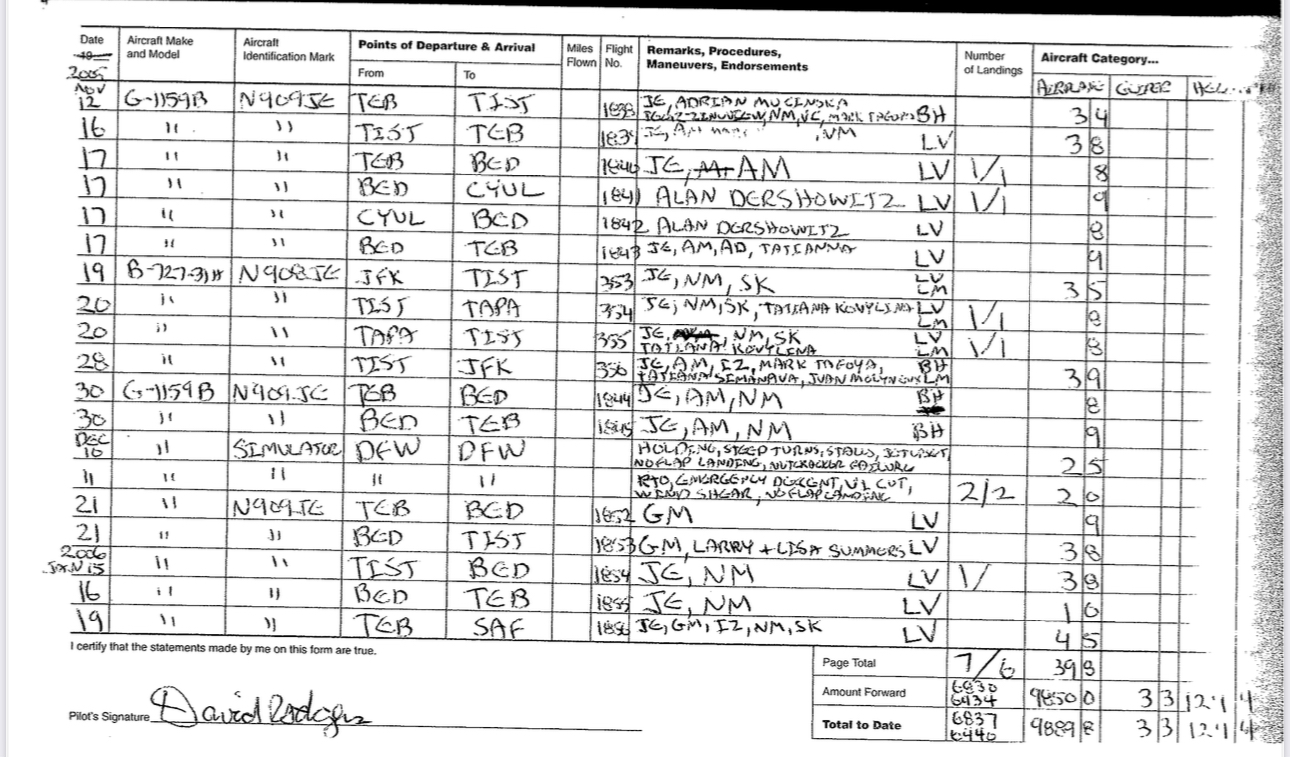 Date Aircraft Make and Model Aircraft Identification Mark Points of Departure & Arrival Miles Flown Flight No. Remarks, Procedures, Maneuvers, Endorsements Number of Landings Aircraft Category...
19 2005 From To AIRPLANE GLIDER
NOV 12 G-1159B N909JE TEB TIST 1838 JE, ADRIAN MUCINSKA NM, VC, BH 3 4
16 " " TIST TEB 1839 JE, AM , NM LV 3 8
17 " " TEB BED 1840 JE, AM LV 1/1 8
17 " " BED CYUL 1841 ALAN DERSHOWITZ LV 1/1 9
17 " " CYUL BED 1842 ALAN DERSHOWITZ LV 8
17 " " BED TEB 1843 JE, AM, AD, TATIANNA LV 9
19 B-727-31H N908JE JFK TIST 353 JE, NM, SK LV LM 3 5
20 " " TIST TAPA 354 JE, NM, SK, TATIANA KOVYLINA LV LM 1/1 8
20 " " TAPA TIST 355 JE, NM, SK TATIANA KOVYLINA LV LM 1/1 8
28 " " TIST JFK 356 JE, AM, IZ, MARK TAFOYA, TATIANA JUAN BH LM 3 9
30 G-1159B N909JE TEB BED 1844 JE, AM, NM BH 8
30 " " BED TEB 1845 JE, AM, NM BH 9
DEC 10 " SIMULATOR DFW DFW HOLDING, STEEP TURNS, STALLS, NO FLAP LANDING, NUTCRACKER FAILURE 2 5
11 " " " " RTO, EMERGENCY DESCENT, V1 CUT, WIND SHEAR, NO FLAP LANDING 2/2 2 0
21 " N909JE TEB BED 1852 GM LV 9
21 " " BED TIST 1853 GM, LARRY + LISA SUMMERS LV 3 8
2006 JAN 15 " " TIST BED 1854 JE, NM LV 1/ 3 8
16 " " BED TEB 1855 JE, NM LV 1 0
19 " " TEB SAF 1856 JE, GM, IZ, NM, SK LV 4 5
I certify that the statements made by me on this form are true.
Page Total 7/6 39 8
Amount Forward 6830 6434 9850 0 3 3 121 4
Pilot's Signature David Rodgers
Total to Date 6837 6440 9889 8 3 3 121 4